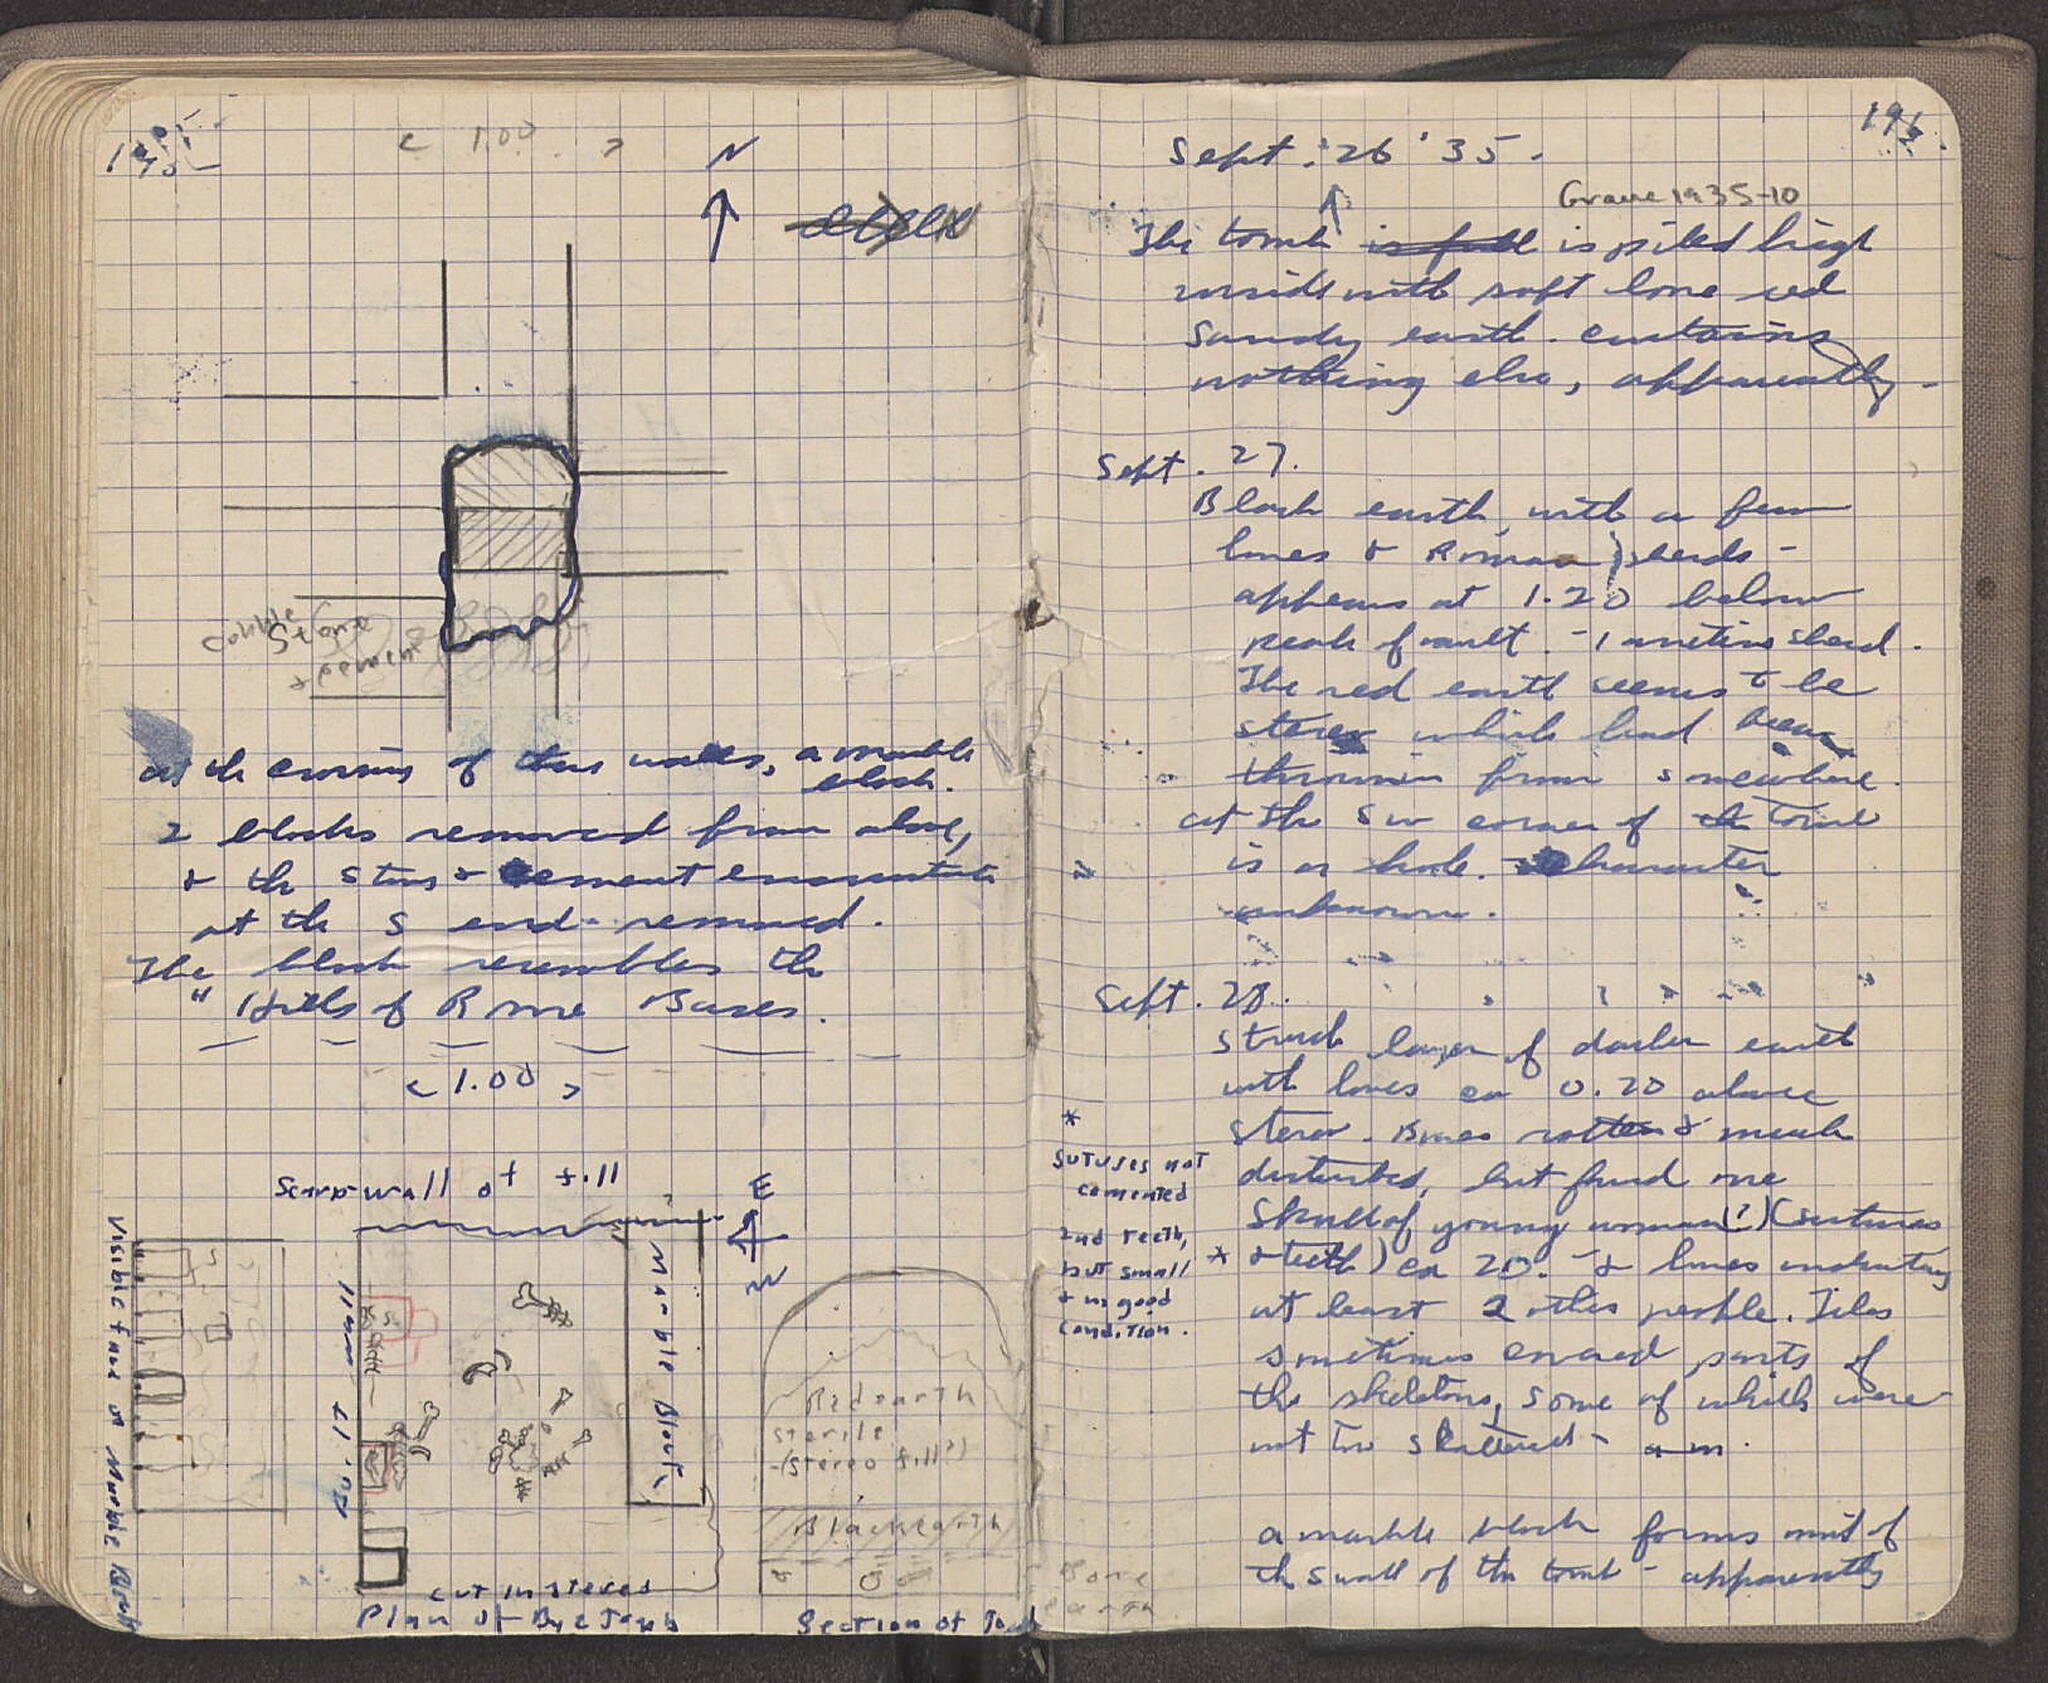 195
< 1.00 >
N
cobble
stone
+ cement
at the crossing of these walls, a marble
block.
2 blocks removed from above,
& the stones & cement
at the S end removed.
The block resembles the
" Hills of Rome Bases.
< 1.00 >
Scarp wall of fill
E
N
Visible face of Marble Block
Marble Block
Cut in stereo
Plan of Byz Tomb
Red earth
sterile
(stereo fill?)
Black earth
Section of Tomb
Bone
earth
196
Sept. 26 '35.
Grave 1935-10
The tomb is full is piled high
inside with soft lone red
sandy earth. contains
nothing else, apparently.
Sept. 27.
Black earth, with a few
bones & Roman sherds -
appears at 1.20 below
peak of vault. - 1 arretine sherd.
The red earth seems to be
stereo which had been
thrown in from somewhere.
at the SW corner of the tomb
is a hole. character
unknown.
Sept. 28.
Struck layer of darker earth
with bones ca 0.20 above
stereo. Bones rotten & much
disturbed, but found one
skull of young woman (?) (sutures
* & teeth) ca 20. - & bones indicating
at least 2 other people. Tiles
sometimes covered parts of
the skeletons, some of which were
not too scattered -
*
sutures not
cemented
2nd teeth,
but small
& in good
condition.
a marble block forms most of
the S wall of the tomb - apparently